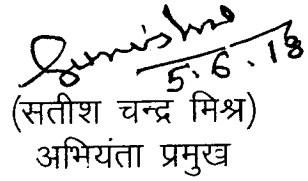 5.6.18
(सतीश चन्द्र मिश्र)
अभियंता प्रमुख